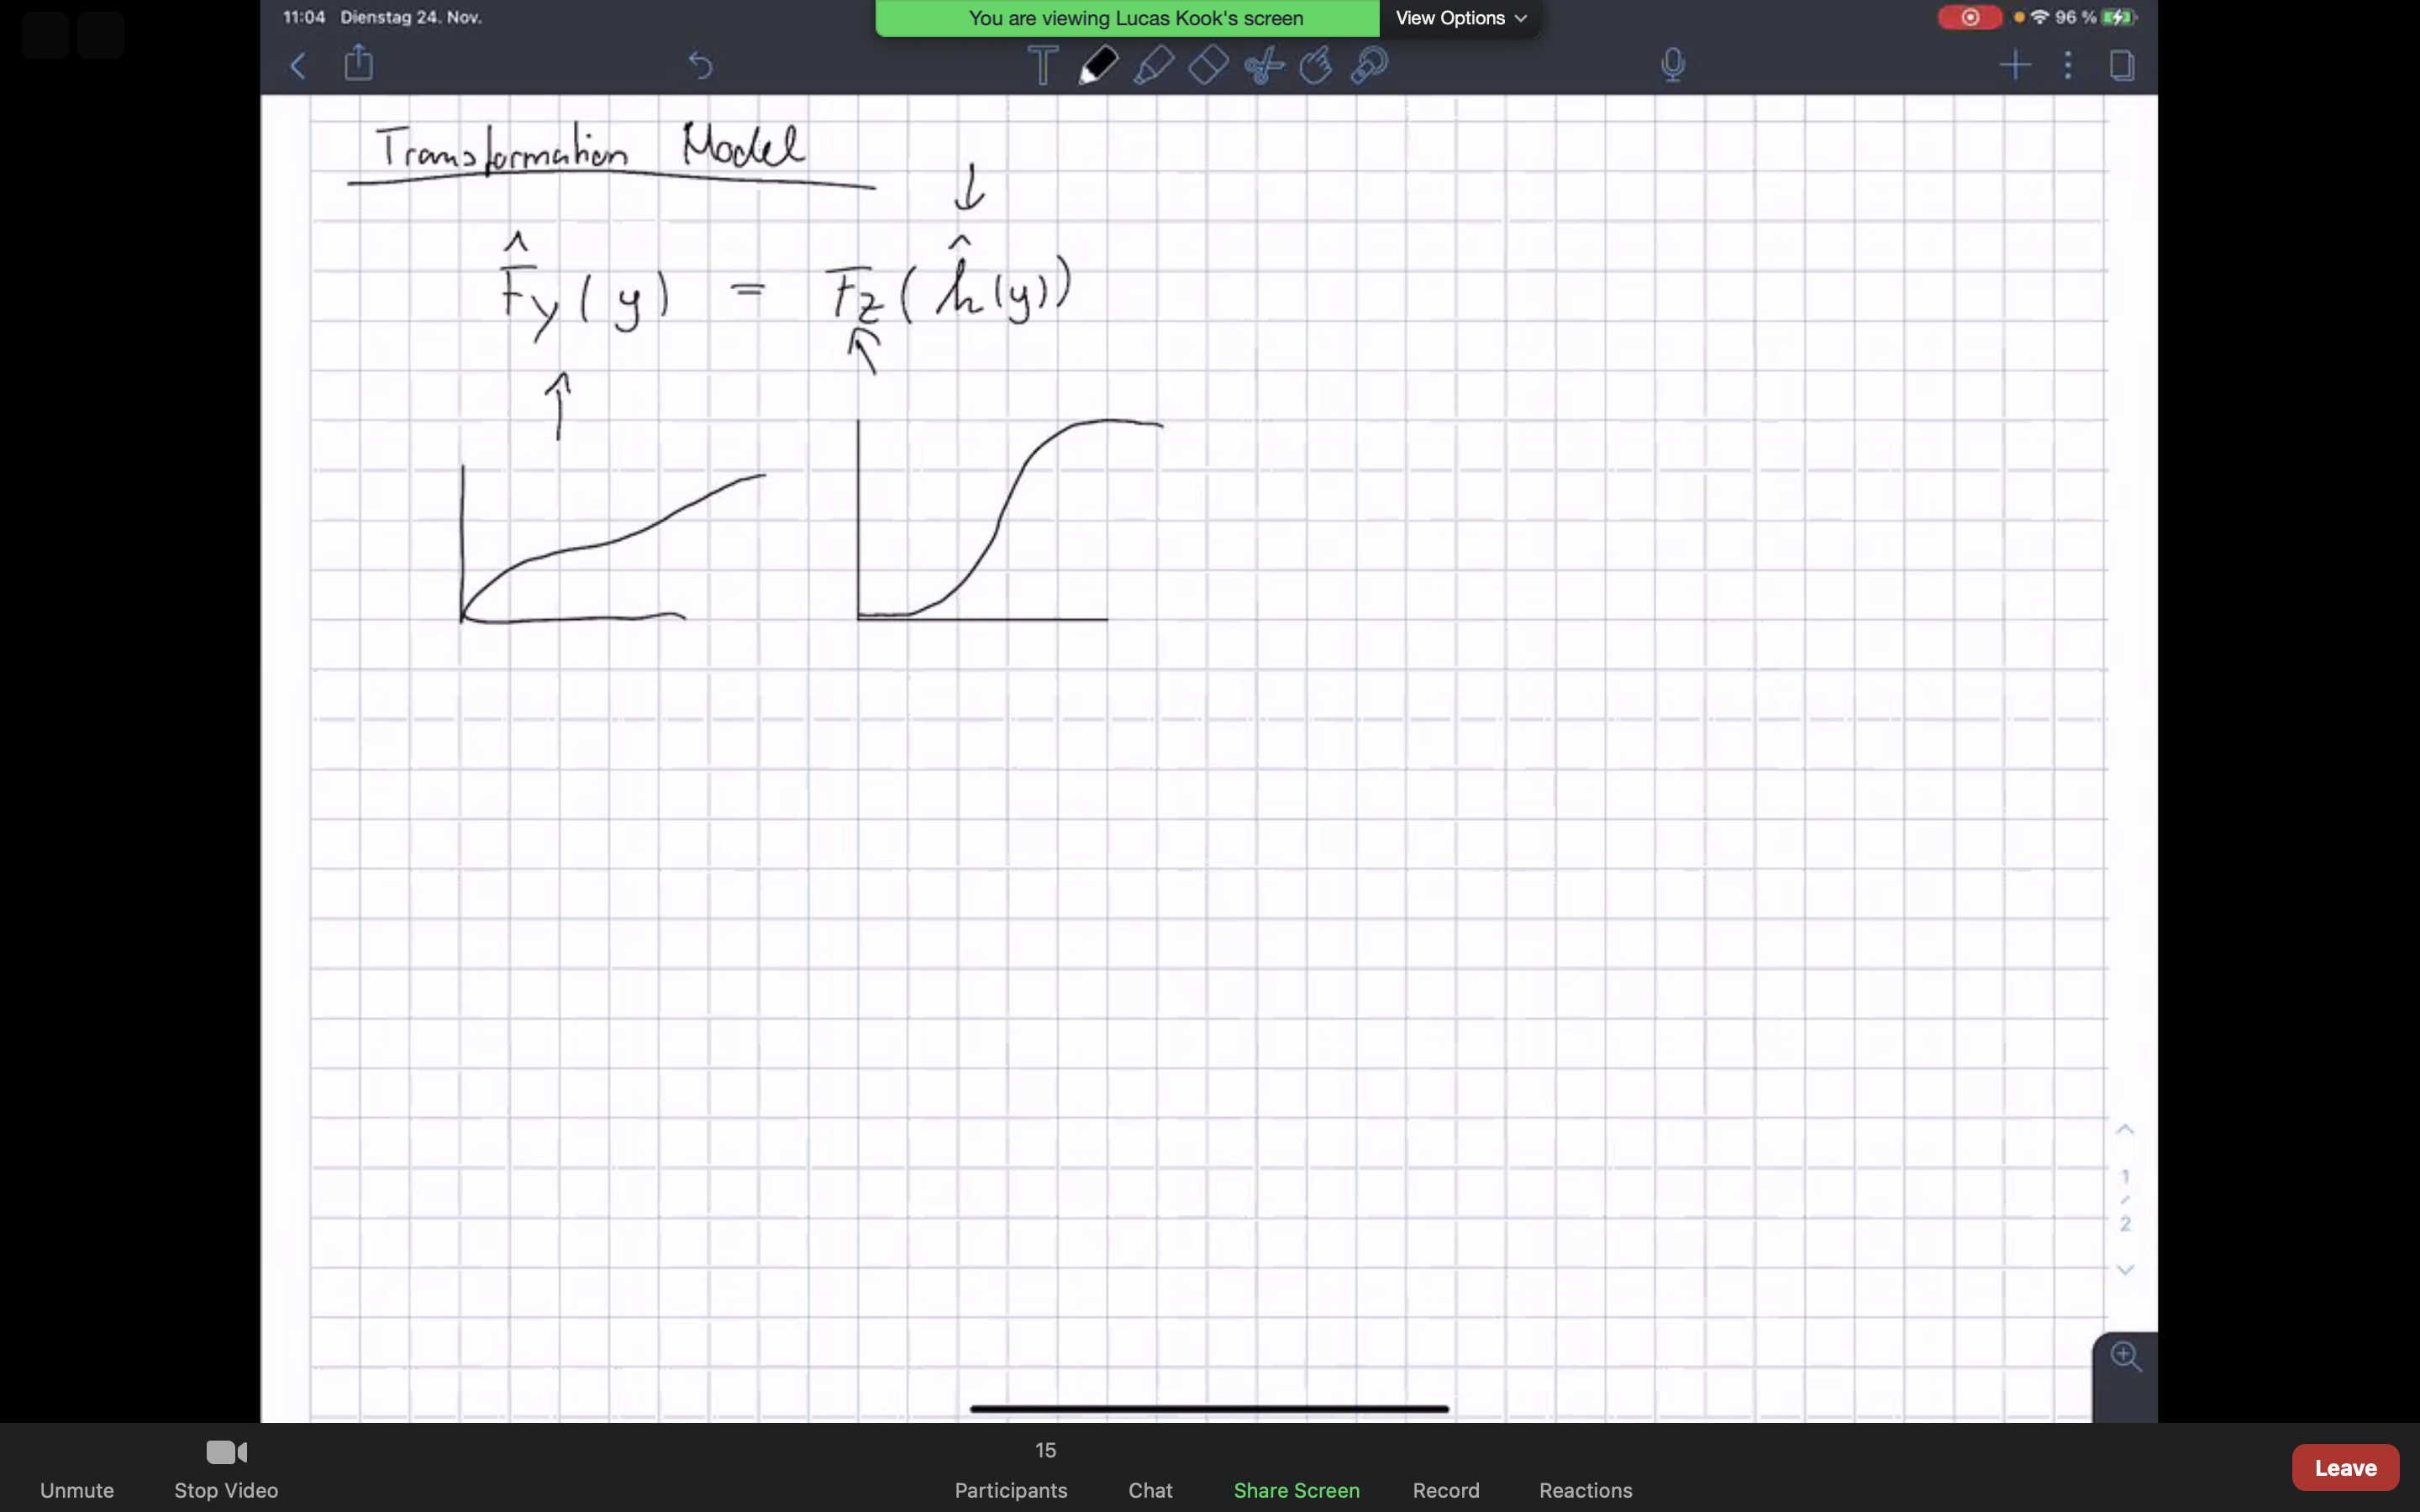 11:04 Dienstag 24. Nov.
You are viewing Lucas Kook's screen
View Options
96 %
Transformation Model
F̂_Y(y) = F_Z(ĥ(y))
1
2
15
Unmute Stop Video Participants Chat Share Screen Record Reactions
Leave